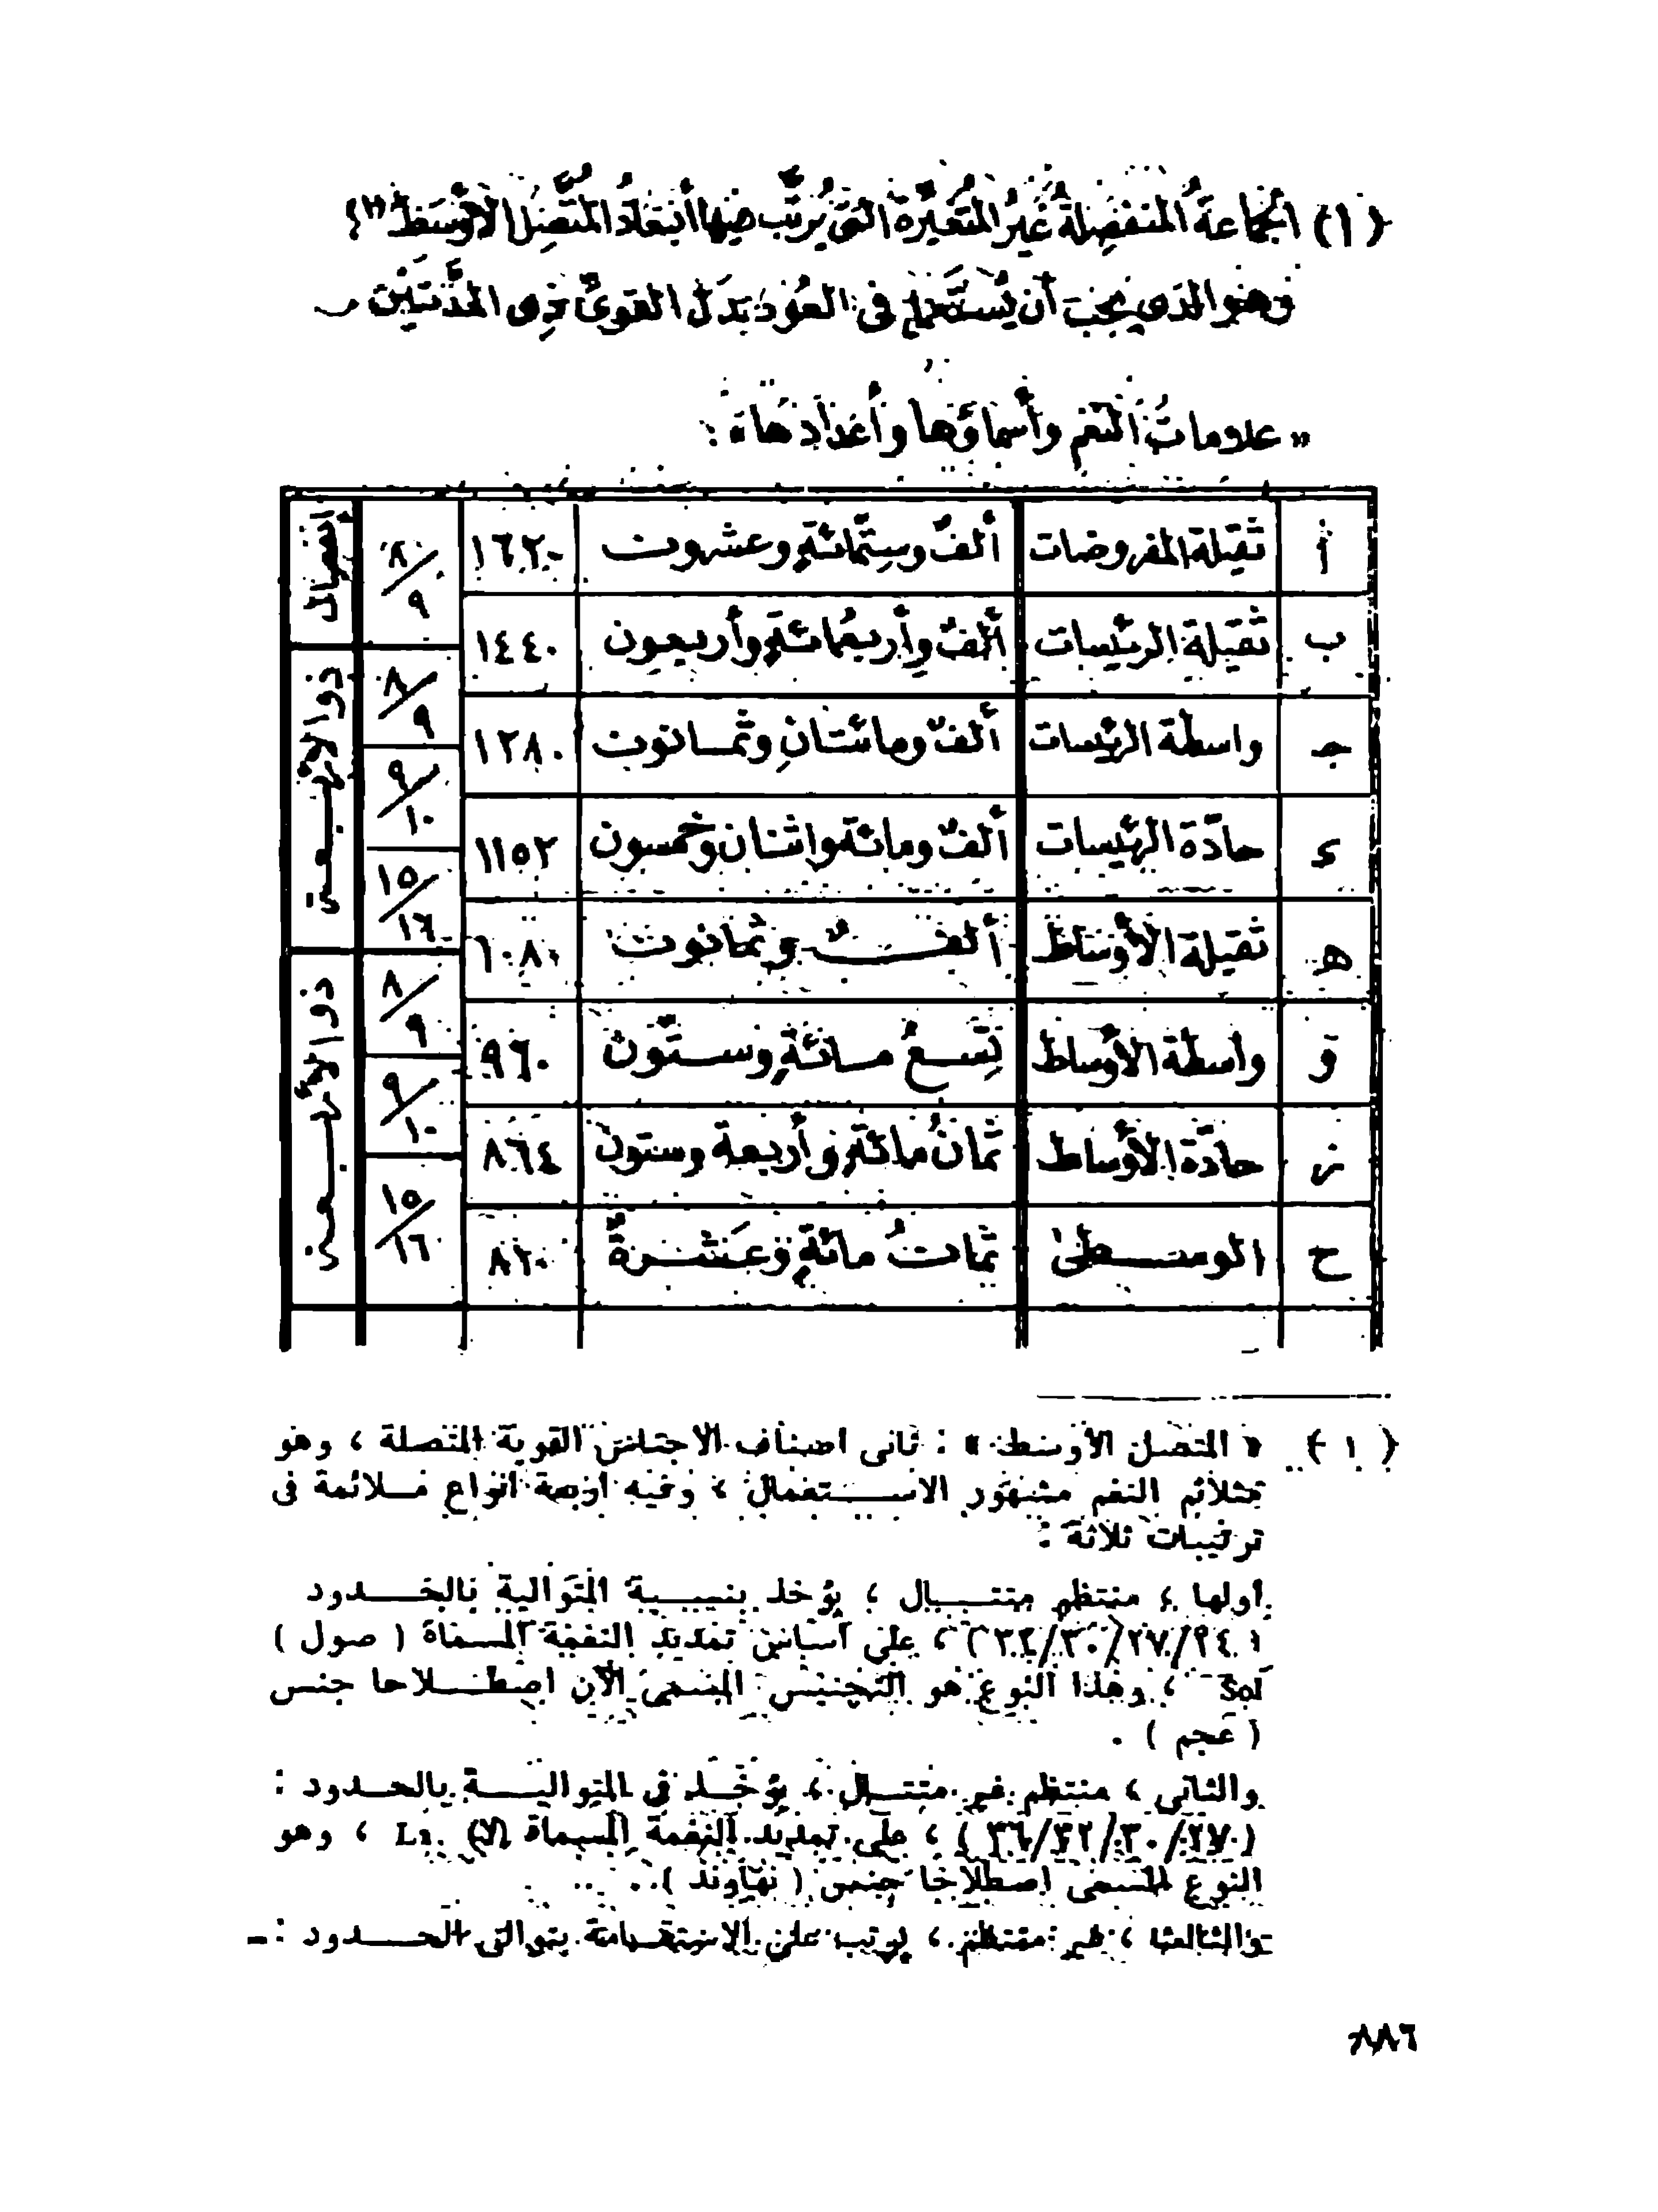 (١) الجماعةُ المنفصِلةُ غيرُ المتغيِّرة التى يُرتَّب فيها أبعَادُ المتَّصِل الأوْسَط "١"؛
وهو الذى يجب أن يُستَعمل فى العُود بَدَلَ القوىِّ ذِى المدَّتَيْن
« علاماتُ النغم وأسماؤها وأعدادها » :
أ | ثقيلة المفروضات | ألفٌ وسِتّمائةٍ وعشرون | ١٦٢٠ | ٨/٩ | إنفصال
ب | ثقيلة الرئيسات | ألفٌ وأربعُمائةٍ وأربعون | ١٤٤٠ | ٨/٩ | ذو الأربعة
جـ | واسطة الرئيسات | ألفٌ ومائتانِ وثمانون | ١٢٨٠ | ٩/١٠
ء | حادّة الرئيسات | ألفٌ ومائة واثنان وخمسون | ١١٥٢ | ١٥/١٦
هـ | ثقيلة الأوساط | ألفٌ وثمانون | ١٠٨٠ | ٨/٩ | ذو الأربعة
و | واسطة الأوساط | تِسعُ مائةٍ وستّون | ٩٦٠ | ٩/١٠
ز | حادّة الأوساط | ثمانُ مائةٍ وأربعة وستون | ٨٦٤ | ١٥/١٦
ح | الوسطىٰ | ثمانُ مائةٍ وعَشرةٌ | ٨١٠
(١) « المتصل الأوسط » : ثانى اصناف الاجناس القوية المتصلة ، وهو
متلائم النغم مشهور الاستعمال ، وفيه أربعة انواع ملائمة فى
ترتيبات ثلاثة :
أولها ، منتظم متتال ، يؤخذ بنسبة المتوالية بالحدود
( ٢٤/٢٧/٣٠/٣٢ ) ، على أساس تمديد النغمة المسماة ( صول )
Sol ، وهذا النوع هو التجنيس المسمى الآن اصطلاحا جنس
( عجم ) .
والثانى ، منتظم غير متتال ، يؤخذ فى المتوالية بالحدود :
( ٢٧/٣٠/٣٢/٣٦ ) ، على تمديد النغمة المسماة (لا) La ، وهو
النوع المسمى اصطلاحا جنس ( نهاوند ) .
والثالث ، غير منتظم ، يرتب على الاستقامة بتوالى الحدود : ـ
٨٨٦